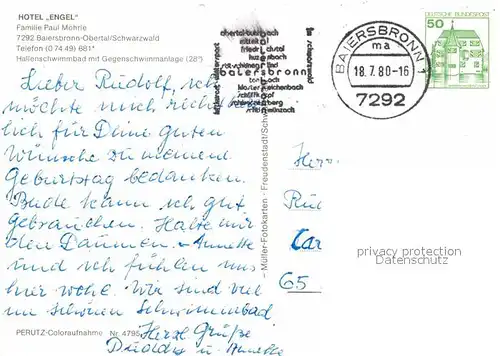 HOTEL „ENGEL"
Familie Paul Möhrle
7292 Baiersbronn-Obertal/Schwarzwald
Telefon (0 74 49) 681*
Hallenschwimmbad mit Gegenschwimmanlage (28°)
Lieber Rudolf, ich
möchte mich recht herz
lich für Deine guten
Wünsche zu meinem
Geburtstag bedanken.
Bude kann ich gut
gebrauchen. Halte mir
den Daumen. – Annette
und ich fühlen uns
hier wohl. Wir sind viel
im schönen Schwimmbad
Herzl. Grüße
u. Annette
PERUTZ-Coloraufnahme Nr. 4795
Müller-Fotokarten · Freudenstadt/Schw
obertal-buhlbach
mitteltal
friedrichstal
huzenbach
röt-schönegründ
baiersbronn
tonbach
klosterreichenbach
schliffkopf
schwarzenberg
schönmünzach
im schwarzwald
BAIERSBRONN 1
ma
18.7.80-16
7292
DEUTSCHE BUNDESPOST
50
Herr
Car
65
privacy protection
Datenschutz